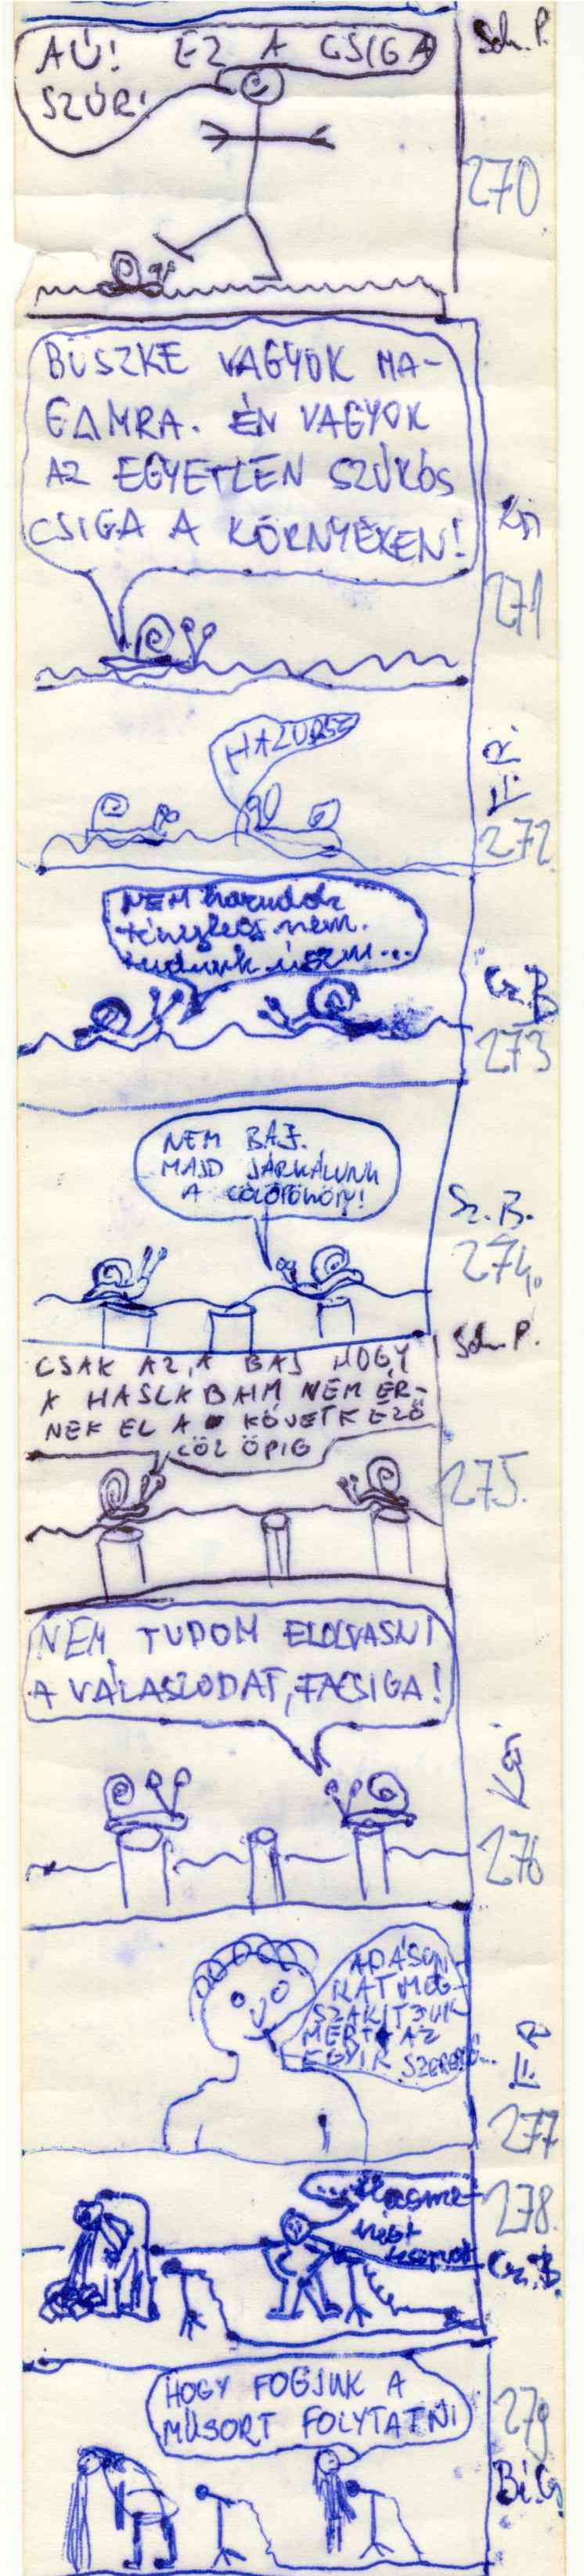 AÚ! EZ A CSIGA
SZÚR!
Sch. P.
270
BÜSZKE VAGYOK MA-
GAMRA. ÉN VAGYOK
AZ EGYETLEN SZÚRÓS
CSIGA A KÖRNYÉKEN!
Kői
271
HAZUDSZ
F.R.
272
NEM hazudok
tényleg nem.
tudunk úszni...
Cz.B
273
NEM BAJ.
MAJD JÁRKÁLUNK
A CÖLÖPÖKÖN!
Sz. B.
274.
Sch. P.
CSAK AZ, A BAJ HOGY
A HASLÁBAIM NEM ÉR-
NEK EL A KÖVETKEZŐ
CÖLÖPIG
275.
NEM TUDOM ELOLVASNI
A VÁLASZODAT, FACSIGA!
Kői
276
ADÁSUN
KAT MEG-
SZAKÍTJUK
MERT AZ
F.R
277
278.
Cz.B.
HOGY FOGJUK A
MŰSORT FOLYTATNI
279
Bi.G.